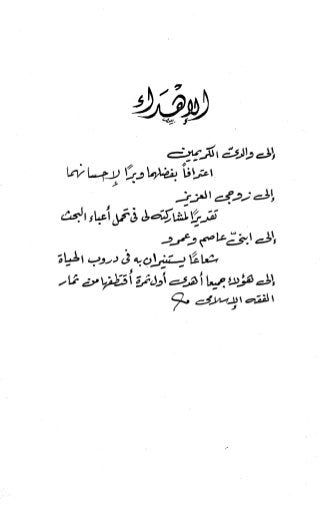 الإهْدَاء
إلى والدىّ الكريمين
اعترافاً بفضلهما وبرًا لإحسانهما
إلى زوجى العزيز
تقديرًا لمشاركته لى فى تحمل أعباء البحث
إلى ابنىّ عاصم وعمرو
شعاعًا يستنيران به فى دروب الحياة
إلى هؤلاء جميعا أهدى أول ثمرة أقتطفها من ثمار
الفقه الإسلامى